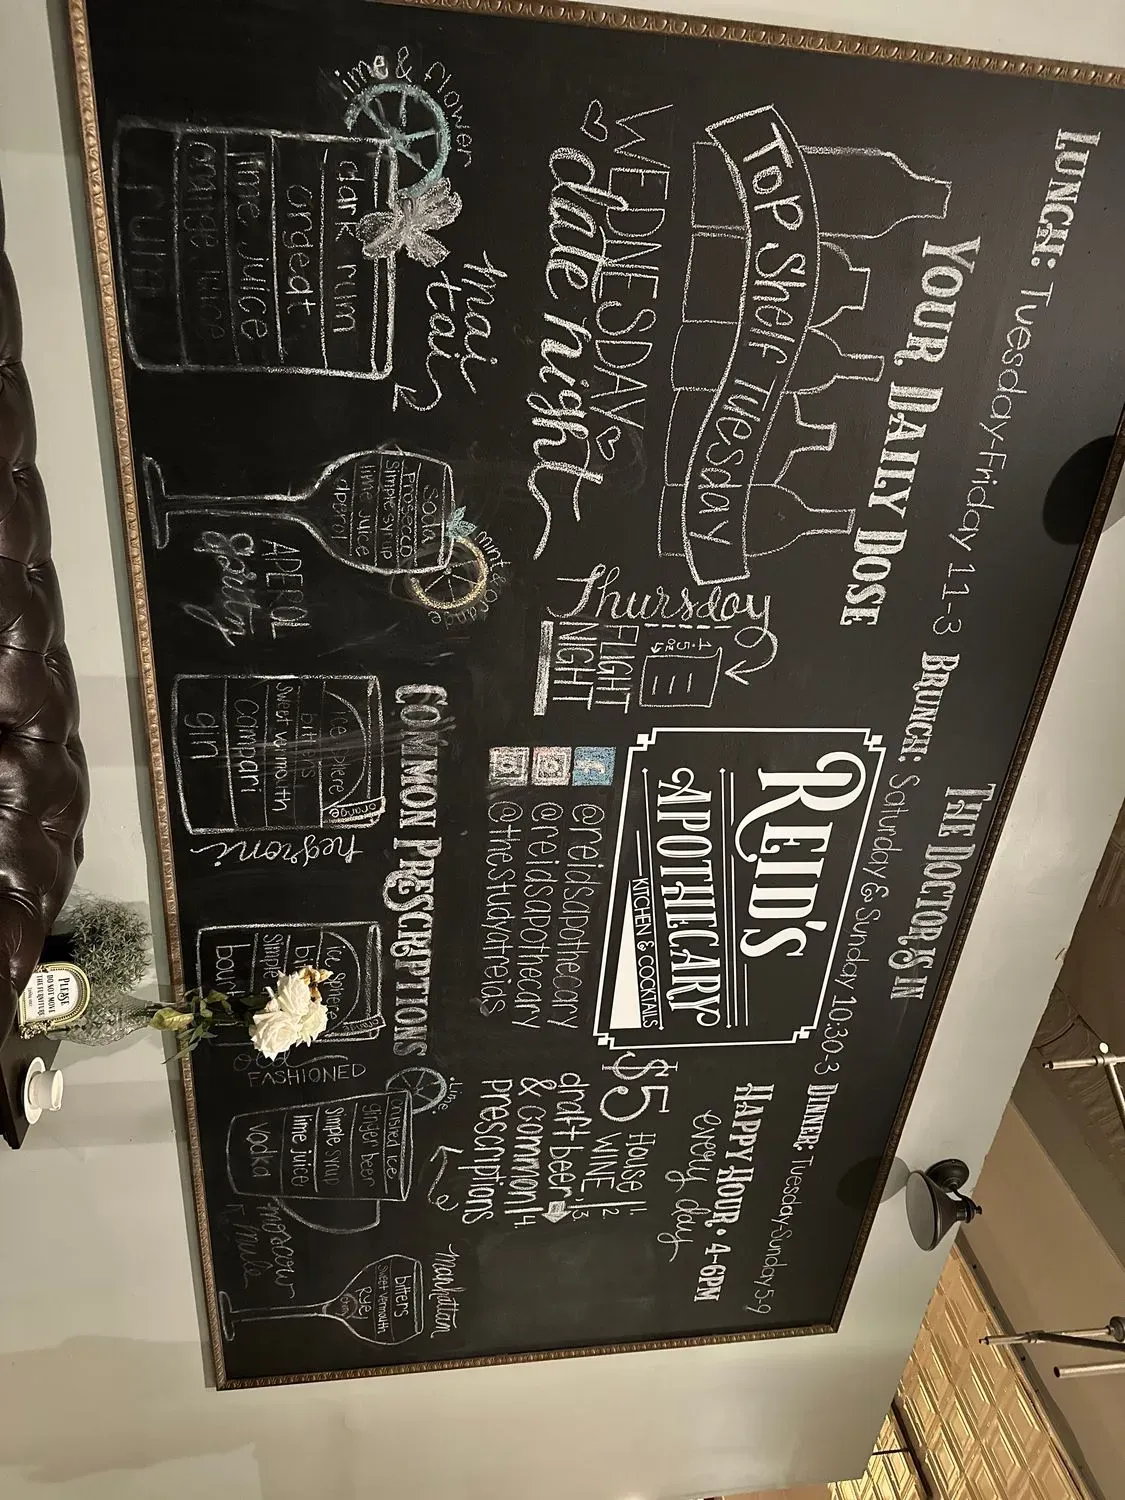 LUNCH: Tuesday-Friday 11-3 BRUNCH: Saturday & Sunday 10:30-3 DINNER: Tuesday-Sunday 5-9
YOUR DAILY DOSE
TOP SHELF TUESDAY
WEDNESDAY
date night
Thursday
1.5oz
FLIGHT
NIGHT
THE DOCTOR IS IN
REID'S
APOTHECARY
KITCHEN & COCKTAILS
@reidsapothecary
@reidsapothecary
@thestudyatreids
HAPPY HOUR • 4-6PM
every day
$5
House
WINE
draft beer
& common
prescriptions
COMMON PRESCRIPTIONS
lime & flower
mai
tai
dark rum
orgeat
lime juice
rum
mint & orange
soda
Prosecco
simple syrup
lime juice
aperol
APEROL
Spritz
ice sphere
orange
bitters
sweet vermouth
campari
gin
negroni
ice sphere
FASHIONED
lime
crushed ice
ginger beer
simple syrup
lime juice
vodka
moscow
mule
manhattan
bitters
sweet vermouth
Rye
PLEASE
DO NOT MOVE